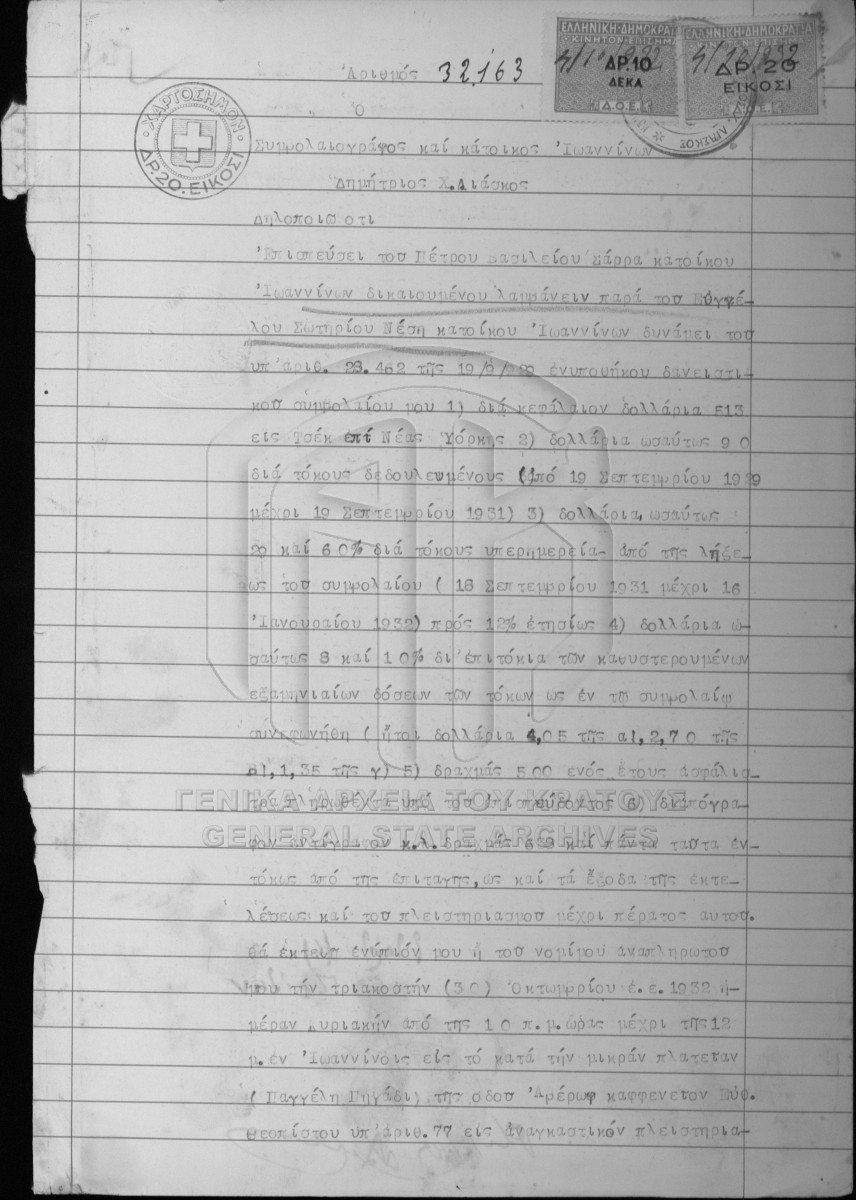 ΕΛΛΗΝΙΚΗ·ΔΗΜΟΚΡΑΤΙΑ
ΚΙΝΗΤΟΝ·ΕΠΙΣΗΜΑ
4/10/932
ΔΡ.10
ΔΕΚΑ
Δ.Ο.Ε.
ΕΛΛΗΝΙΚΗ·ΔΗΜΟΚΡΑΤΙΑ
4/10/932
ΔΡ.20
ΕΙΚΟΣΙ
Ἀριθμός 32.163
ΧΑΡΤΟΣΗΜΟΝ
ΔΡ.20.ΕΙΚΟΣΙ
Ὁ
Συμβολαιογράφος καί κάτοικος Ἰωαννίνων
Δημήτριος Χ.Λιάσκος
Δηλοποιῶ ὅτι
Ἐπισπεύσει τοῦ Πέτρου Βασιλείου Σάρρα κατοίκου
Ἰωαννίνων δικαιουμένου λαμβάνειν παρά τοῦ Εὐαγγέ-
λου Σωτηρίου Νέση κατοίκου Ἰωαννίνων δυνάμει τοῦ
ὑπ'ἀριθ. 23.462 τῆς 19/9/929 ἐνυποθήκου δανειστι-
κοῦ συμβολαίου μου 1) διά κεφάλαιον δολλάρια 513
εἰς Τσέκ ἐπί Νέας Ὑόρκης 2) δολλάρια ὡσαύτως 90
διά τόκους δεδουλευμένους (ἀπό 19 Σεπτεμβρίου 1929
μέχρι 19 Σεπτεμβρίου 1931) 3) δολλάρια ὡσαύτως
20 καί 60% διά τόκους ὑπερημερεία- ἀπό τῆς λήξε-
ως τοῦ συμβολαίου ( 18 Σεπτεμβρίου 1931 μέχρι 16
Ἰανουραίου 1932) πρός 12% ἐτησίως 4) δολλάρια ὡ-
σαύτως 8 καί 10% δι'ἐπιτόκια τῶν καθυστερουμένων
ἑξαμηνιαίων δόσεων τῶν τόκων ὡς ἐν τῷ συμβολαίῳ
συνεφωνήθη ( ἤτοι δολλάρια 4,05 τῆς α!,2,70 τῆς
β!,1,35 τῆς γ) 5) δραχμάς 500 ἑνός ἔτους ἀσφάλισ-
τρα πληρωθέχτα ὑπό τοῦ ἐπισπεύδοντος 6) δι'ἀπόγρα-
φον ἀντίγραφον κ.λ. δραχμάς 639 καί πάντα ταῦτα ἐν-
τόκως ἀπό τῆς ἐπιταγῆς,ὡς καί τά ἔξοδα τῆς ἐκτε-
λέσεως καί τοῦ πλειστηριασμοῦ μέχρι πέρατος αὐτοῦ.
θά ἐκτεθῇ ἐνώπιόν μου ἤ τοῦ νομίμου ἀναπληρωτοῦ
μου τήν τριακοστήν (30) Ὀκτωμβρίου ἐ.ἔ.1932 ἡ-
μέραν Κυριακήν ἀπό τῆς 10 π.μ.ὥρας μέχρι τῆς12
μ.ἐν Ἰωαννίνοις εἰς τό κατά τήν μικράν πλατεῖαν
( Παγγέλη Πηγάδι) τῆς ὁδοῦ Ἀβέρωφ καφφενεῖον Εὐθ.
Θεοπίστου ὑπ'ἀριθ.77 εἰς ἀναγκαστικόν πλειστηρια-
ΓΕΝΙΚΑ ΑΡΧΕΙΑ ΤΟΥ ΚΡΑΤΟΥΣ
GENERAL STATE ARCHIVES